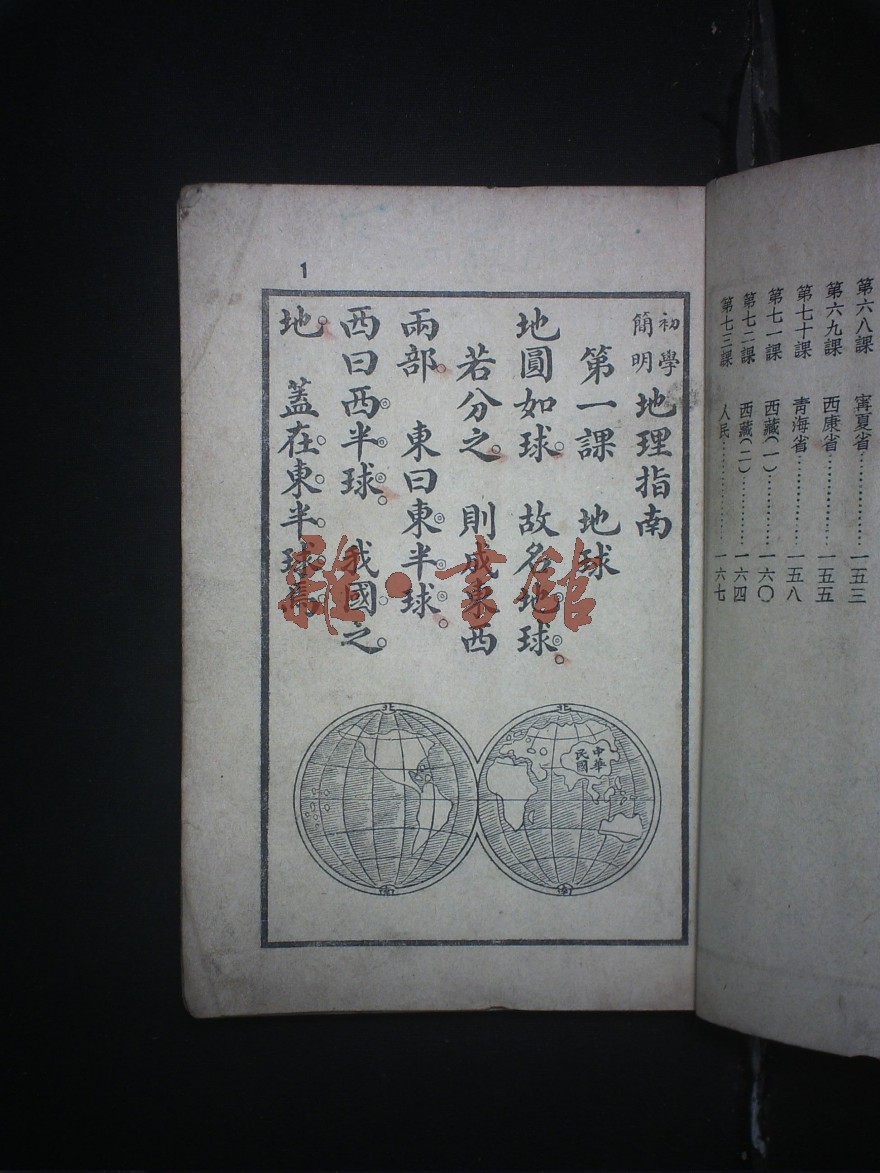 第六八課 寗夏省……………一五三
第六九課 西康省……………一五五
第七十課 青海省……………一五八
第七一課 西藏(一)…………一六〇
第七二課 西藏(二)…………一六四
第七三課 人民………………一六七
1
初學簡明地理指南
第一課 地球
地圓如球。故名地球。
若分之。則成東西
兩部。東曰東半球。
西曰西半球。我國之
地。蓋在東半球焉。
北
南
北
中華民國
南
雜·書館